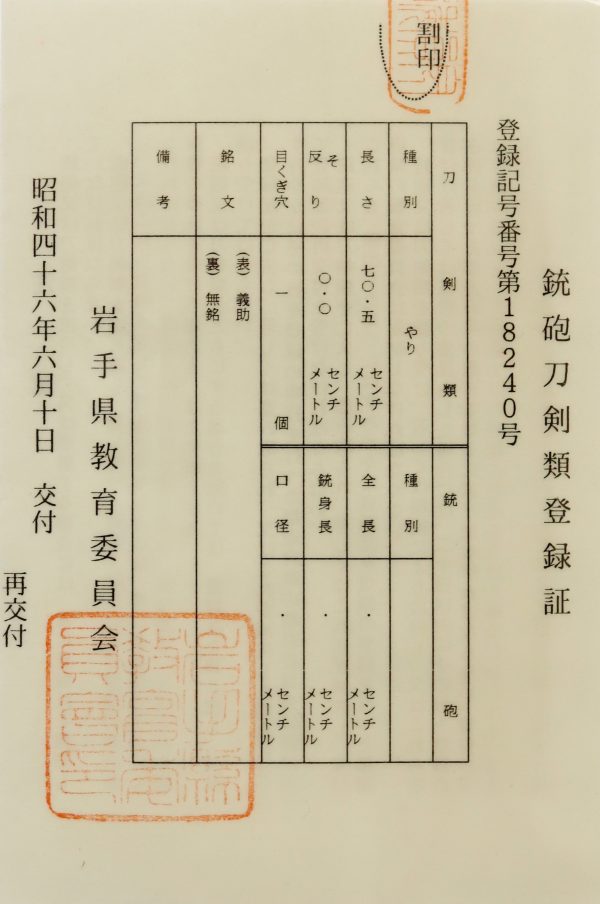 割印
銃砲刀剣類登録証
登録記号番号第18240号
刀剣類
種別 やり
長さ 七〇・五 センチメートル
そり 反り 〇・〇 センチメートル
目くぎ穴 一 個
銃砲
種別
全長 ・ センチメートル
銃身長 ・ センチメートル
口径 ・ センチメートル
銘文
(表) 義助
(裏) 無銘
備考
岩手県教育委員会
昭和四十六年六月十日 交付
再交付